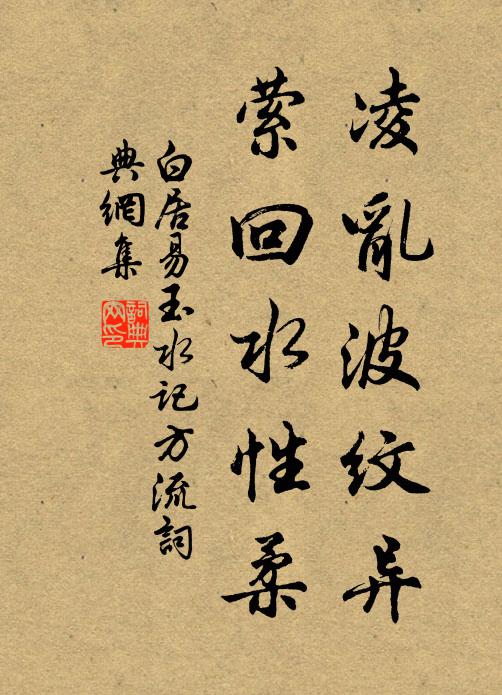 凌亂波纹异
萦回水性柔
白居易玉水记方流詞
典網集
詞典网印